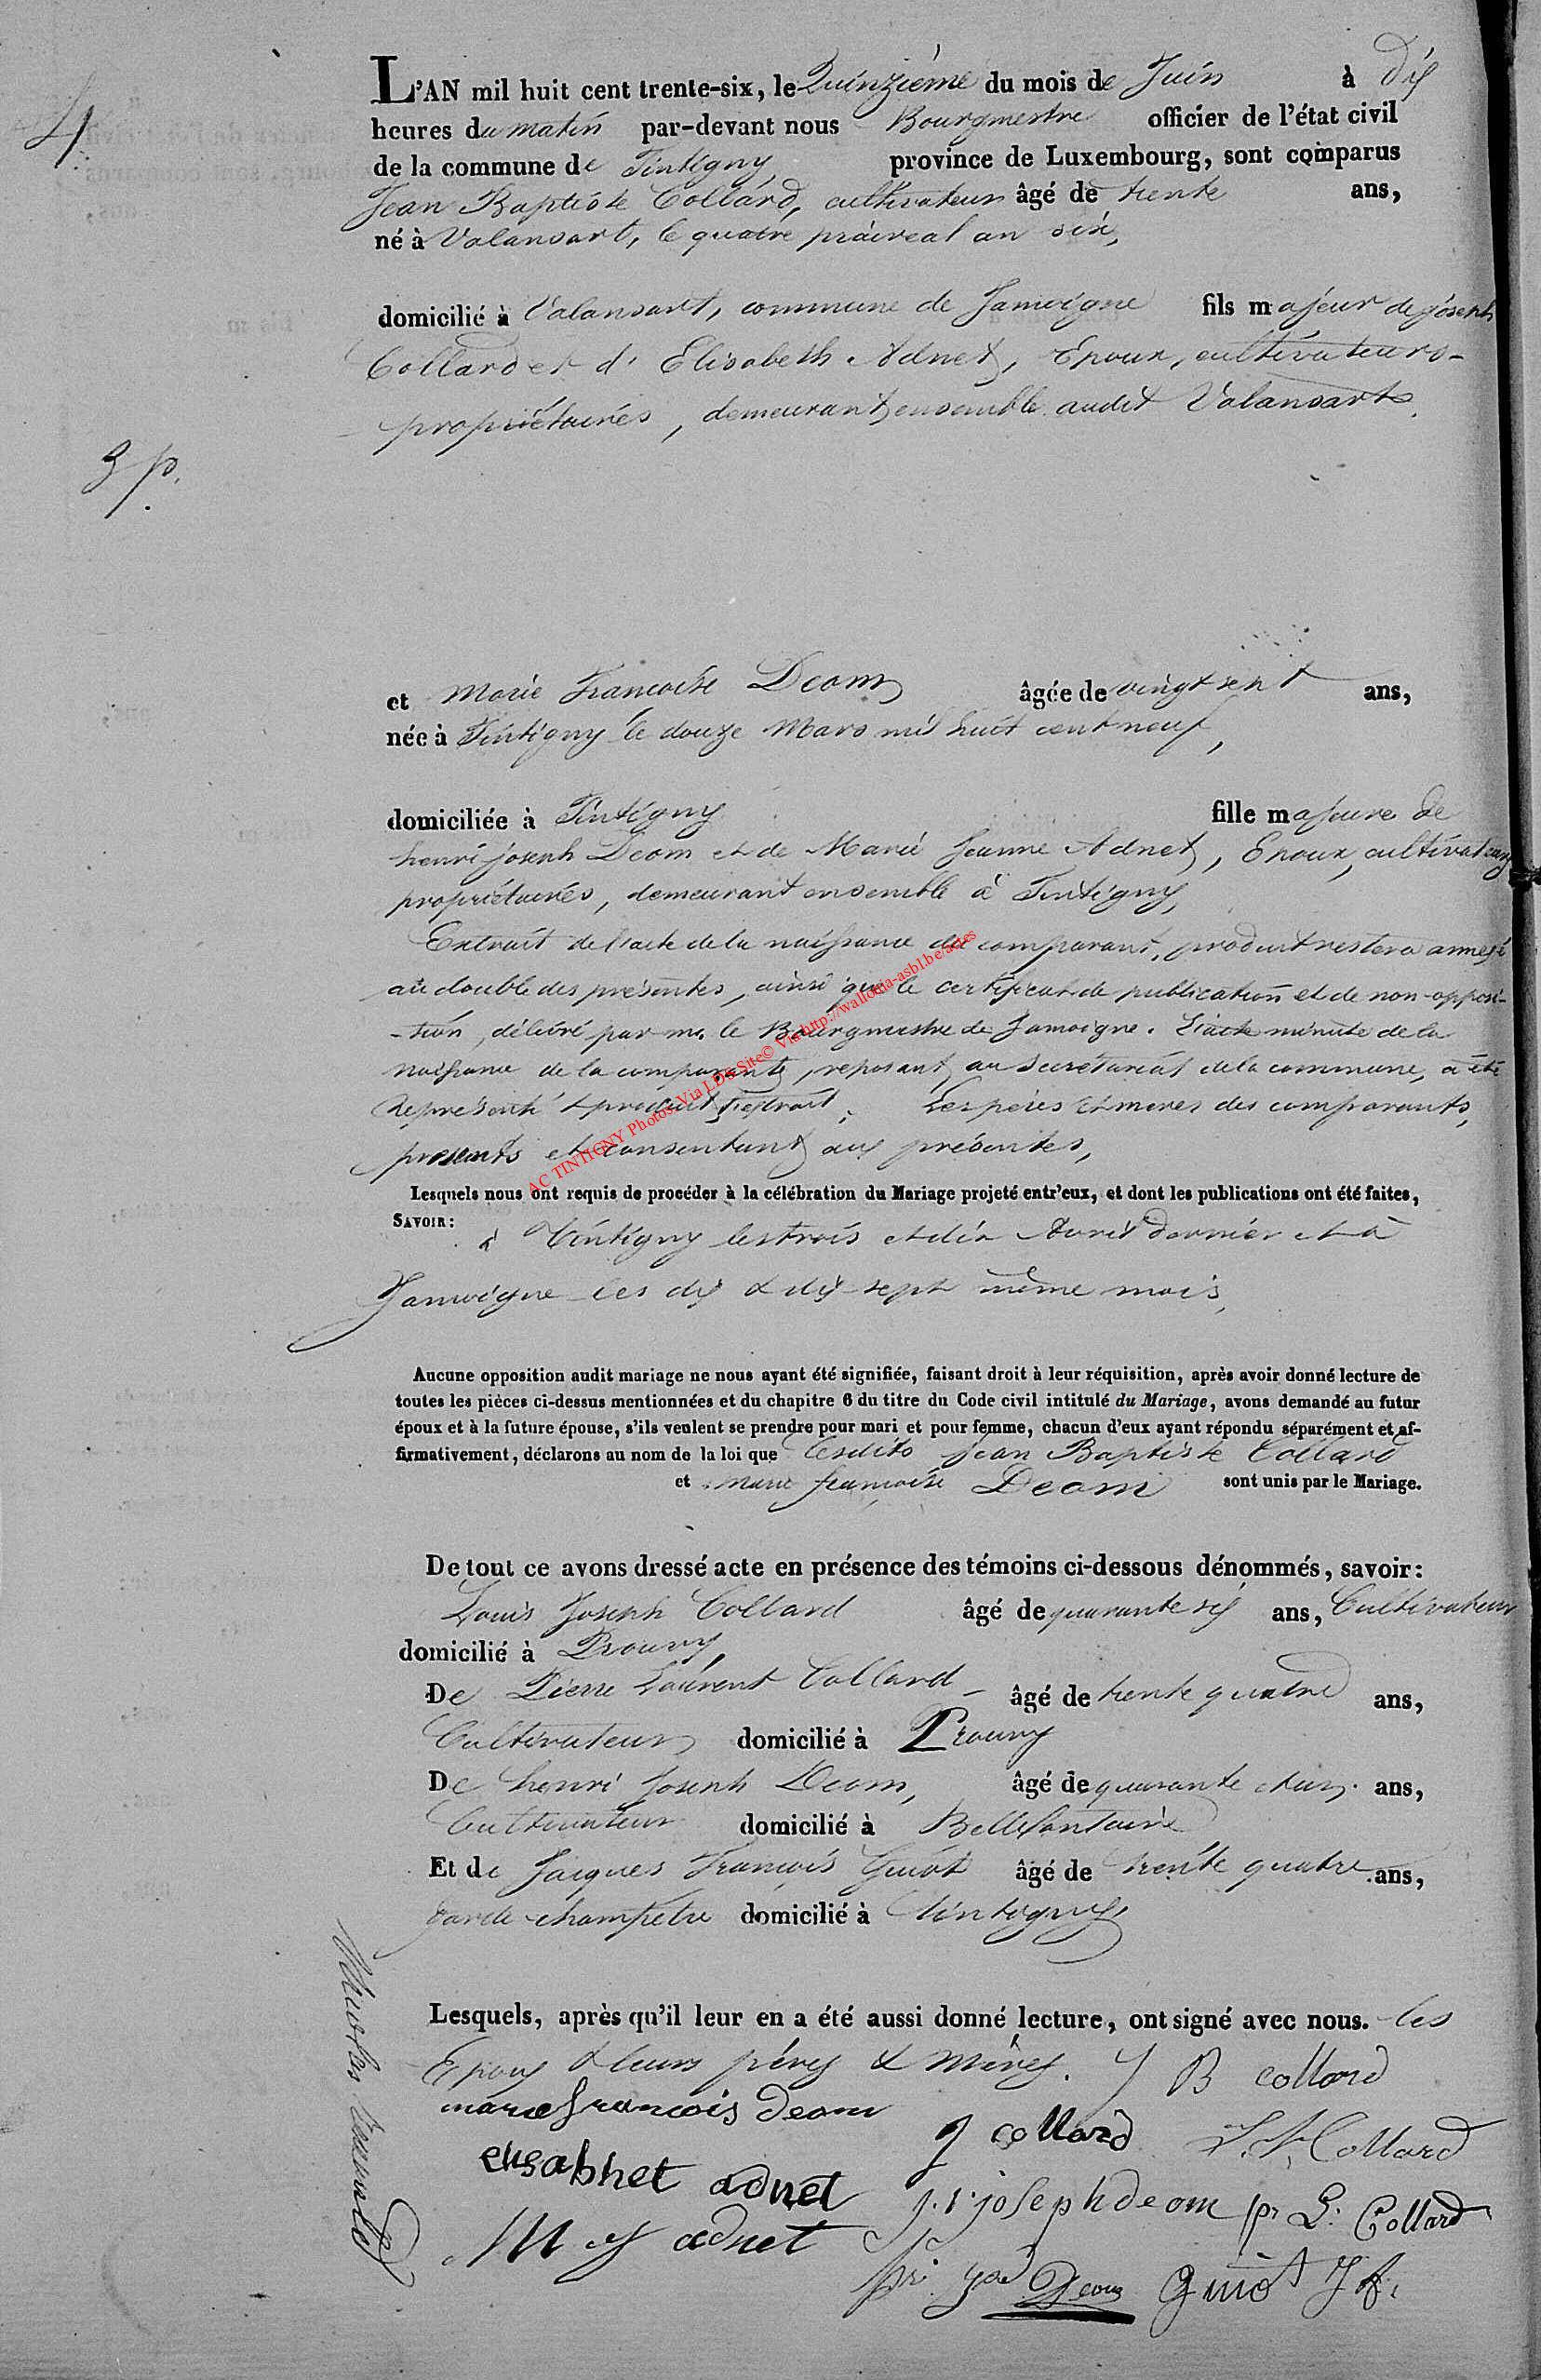 4
L'AN mil huit cent trente-six, le Quinzième du mois de Juin à dix
heures du matin par-devant nous Bourgmestre officier de l'état civil
de la commune de Tintigny, province de Luxembourg, sont comparus
Jean Baptiste Collard, cultivateur âgé de trente ans,
né à Valansart, le quatre prairéal an six,
domicilié à Valansart, commune de Jamoigne fils majeur de joseph
Collard et d'Elisabeth Adnet, Epoux, cultivateurs-
propriétaires, demeurant ensemble audit Valansart.
3 p.
et Marie Françoise Deom âgée de vingt sept ans,
née à Tintigny le douze Mars mil huit cent neuf,
domiciliée à Tintigny fille majeure de
henri joseph Deom et de Marie Jeanne Adnet, Epoux, cultivateurs
propriétaires, demeurant ensemble à Tintigny,
Extrait de l'acte de la naissance du comparant, produit restera annexé
au double des présentes, ainsi que le certificat de publication et de non-opposi-
-tion, délivré par mr. le Bourgmestre de Jamoigne. L'acte minute de la
naissance de la comparante, reposant au secrétariat de la commune, a été
représenté & produit Les pères et mères des comparants,
présents et consentant aux présentes,
AC TINTIGNY Photos: Via LDS Site© Via http://wallonia-asbl.be/actes
Lesquels nous ont requis de procéder à la célébration du Mariage projeté entr'eux, et dont les publications ont été faites,
SAVOIR: à Tintigny les trois et dix Avril dernier et à
Jamoigne les dix & dix-sept même mois,
Aucune opposition audit mariage ne nous ayant été signifiée, faisant droit à leur réquisition, après avoir donné lecture de
toutes les pièces ci-dessus mentionnées et du chapitre 6 du titre du Code civil intitulé du Mariage, avons demandé au futur
époux et à la future épouse, s'ils veulent se prendre pour mari et pour femme, chacun d'eux ayant répondu séparément et af-
firmativement, déclarons au nom de la loi que lesdits Jean Baptiste Collard
et marie françoise Deom sont unis par le Mariage.
De tout ce avons dressé acte en présence des témoins ci-dessous dénommés, savoir:
Louis Joseph Collard âgé de quarante six ans, Cultivateur
domicilié à Prouvy,
De Pierre Laurent Collard âgé de trente quatre ans,
Cultivateur domicilié à Prouvy
De henri Joseph Deom, âgé de quarante ans,
Cultivateur domicilié à Bellefontaine
Et de Jacques François Guiot âgé de trente quatre ans,
Garde-champêtre domicilié à Tintigny,
Lesquels, après qu'il leur en a été aussi donné lecture, ont signé avec nous. les
Epoux & leurs pères & mères. J B collard
marie francois deom
J collard L. J. Collard
elisabhet adnet
j. joseph deom pr L: Collard
M J adnet
Deom Guiot J f.